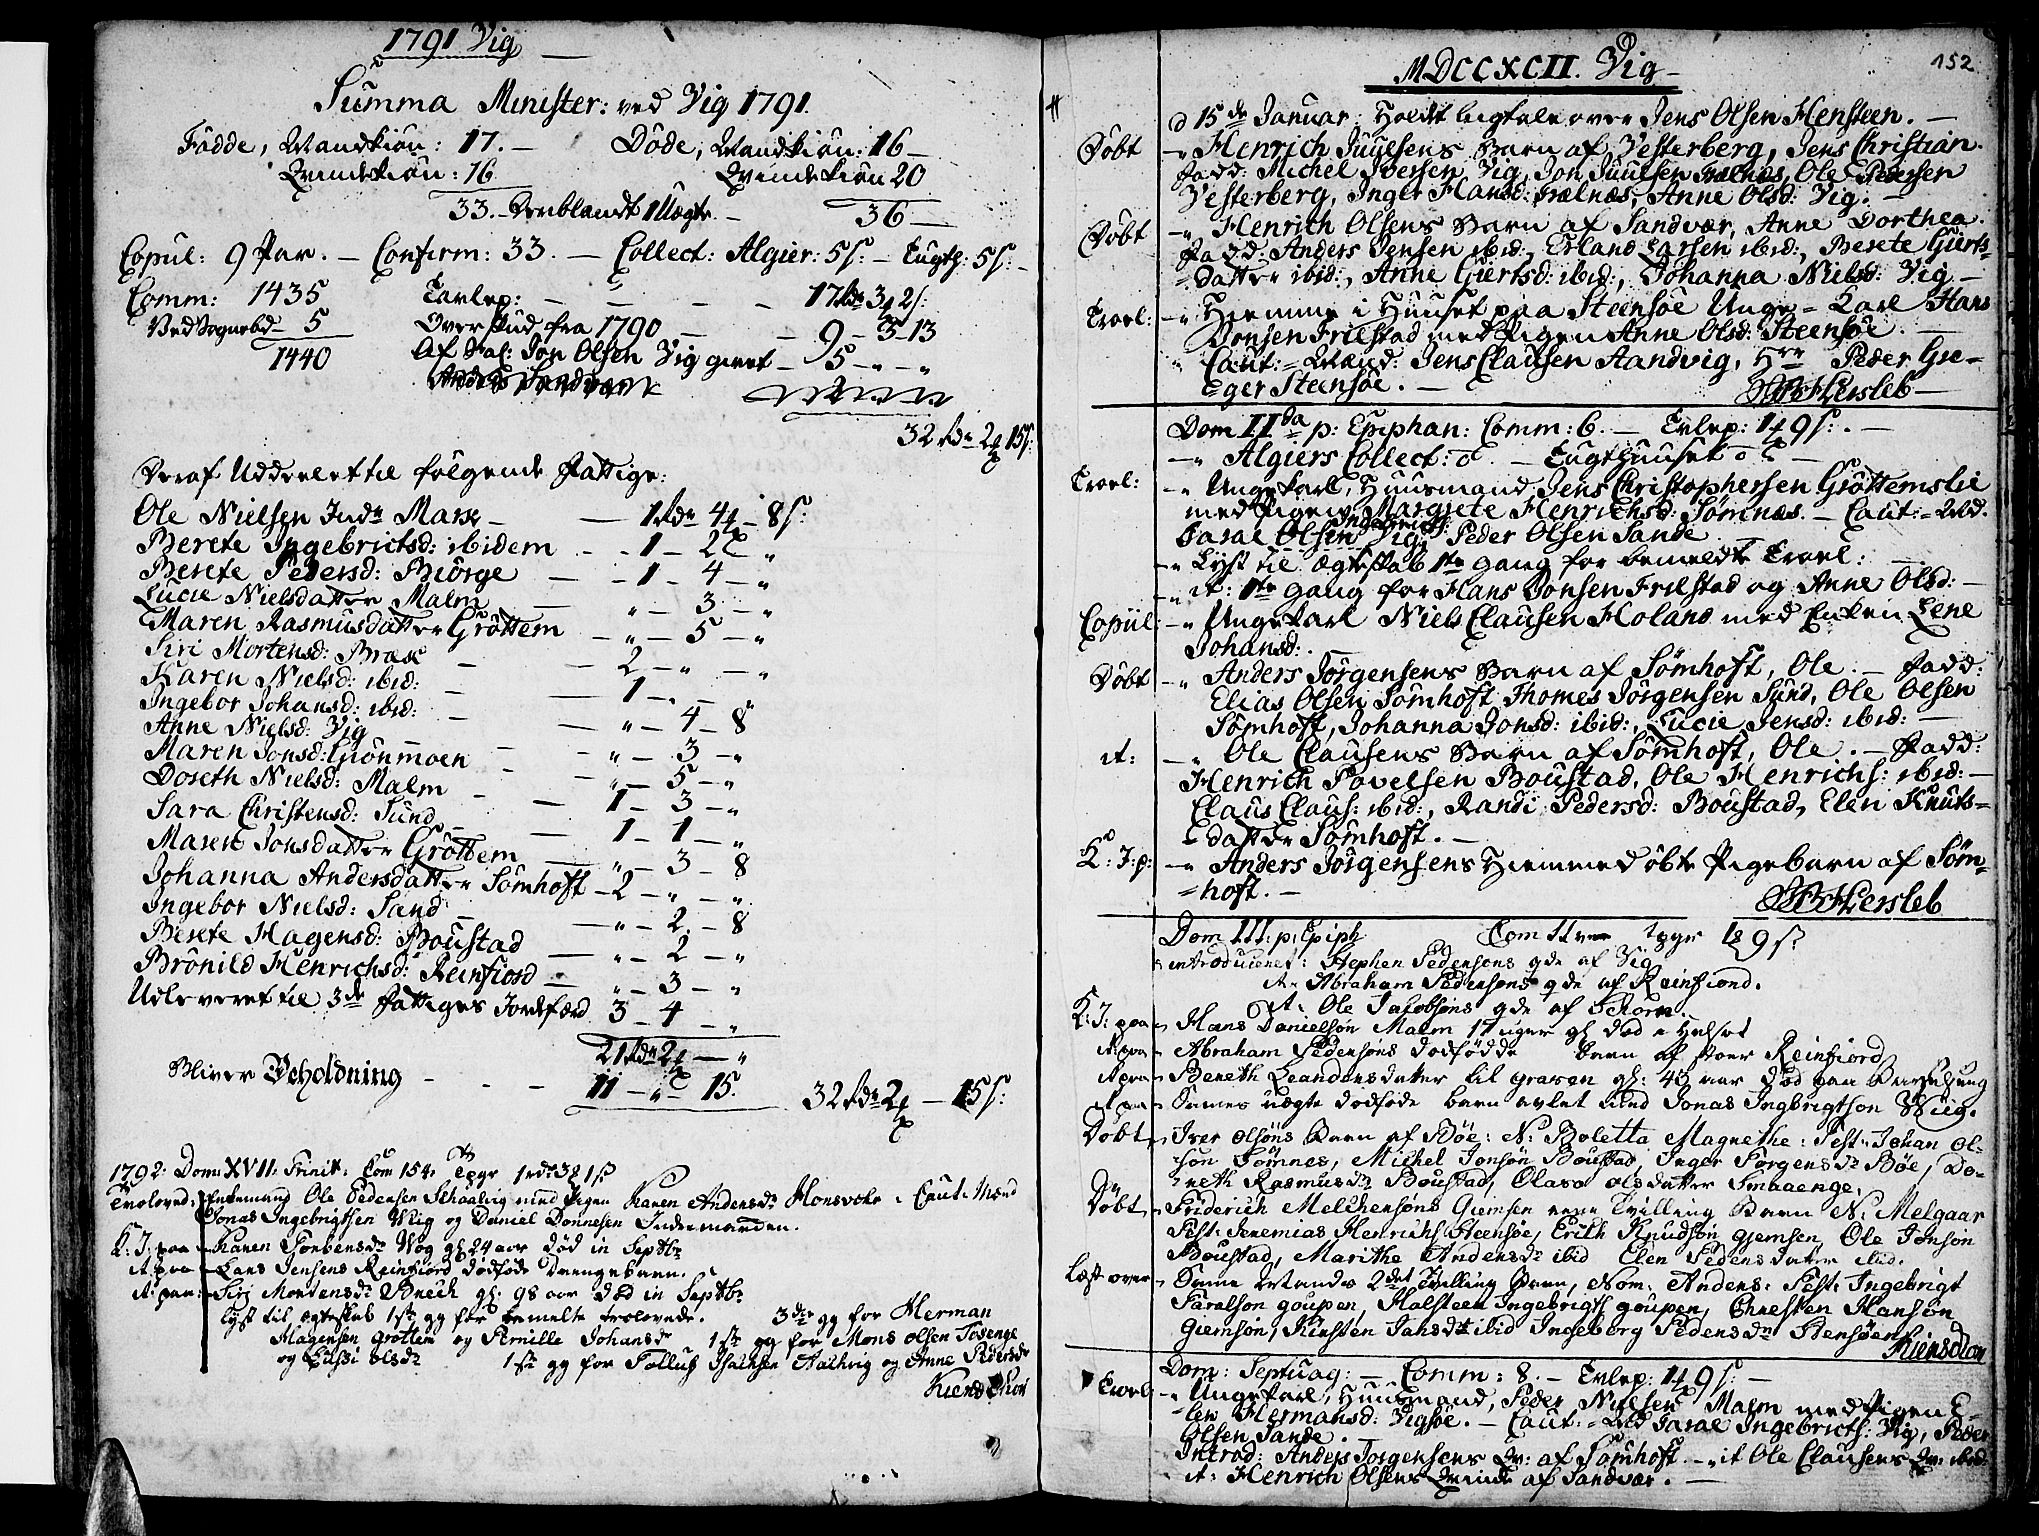 1791 Vig
Summa Minister: ved Vig 1791.
Födde, Mandkiön: 17. — Döde, Mandkiön: 16 —
Qvindekiön: 16 Qvindekiön 20
33. — Deriblandt 1 Uægte. — 36 —
Copul: 9 Par. — Confirm: 33. — Collect: Algier: 5 s. — Tugth: 5 s. —
Comm: 1435 Tavlep: — — — — 17 rdr 3 2 s:
Ved Sognebd — 5 Overskud fra 1790 — — 9 — 3 — 13
1440 Af Sal: Jon Olsen Vig givet — 5 — " — "
32 rdr 2 15 s:
Deraf Uddeelet til følgende Fattige:
Ole Nielsen Indr Marse — — 1 rdr 4 — 8 s:
Berete Ingebrictsd: ibidem — 1 — 2 "
Berete Pedersd: Biörge — 1 — 4 — "
Lucie Nielsdatter Malm — " — 3 — "
Maren Rasmusdatter Gröttem — " — 5 — "
Siri Mortensd: Bræk — 2 — " — "
Karen Nielsd: ibid: — 1 — " —
Ingebor Johansd: ibid: — " — 4 — 8
Anne Nielsd: Vig — " — 3 — "
Maren Jonsd: Grönmoen — " — 5 — "
Doreth Nielsd: Malm — 1 — 3 — "
Sara Christensd: Sund — 1 — 1 — "
Maren Jonsdatter Gröttem — " — 3 — 8
Johanna Andersdatter Sömhoft — 2 — " — "
Ingebor Nielsd: Sand — " — 2 — 8
Berete Hagensd: Boustad — " — 2 — "
Brönild Henrichsd: Reinfiord — " — 3 — "
Udleveret til 3de Fattiges Jordefærd 3 — 4 — "
21 rdr 2 — "
Bliver Beholdning — — — 11 — " 15. 32 rdr 2 — 15 s:
1792: Dom: XVII: Trinit: Com 154. 1 rdr 3 1 s
Troloved: Enkemand Ole Pedersen med Pigen Karen Andersdr — Caut. Mænd
Jonas Ingebrigtsen Wiig og Daniel Dönnesen
K: J: paa — Karen Torbensdr Wog gl. 24 aar död in Septbr
it: paa — Lars Jensens Reinfiord dödföde Drengebarn.
it: paa: Siri Mortensdr Brech gl: 98 aar död in Septbr
Lyst til ægteskab 1ste gg for bemelte trolovede. 3die gg for Herman
Magensen Grøttem og Pernille Johansdr 1ste gg for Mons Olsen Tosenge
og Lussi Olsdr 1ste gg for Tollus Isachsen Aalhvig og Anne Pedersdr
MDCCXCII. Vig 152
d 15de Januar: Holdt Ligtale over Jens Olsen Hensteen. —
Döbt — " Henrich Juulsens Barn af Vesterberg, Jens Christian.
Fadd: Michel Iversen Vig, Jon Juulsen Fælnæs, Ole Pedersen
Vesterberg, Inger Hansd: Fælnæs, Anne Olsd: Vig. —
Döbt — " Henrich Olsens Barn af Sandvær, Anne Dorthea.
Fadd: Anders Jensen ibid:, Erland Larsen ibid:, Berete Gierts=
=datter ibid:, Anne Giertsd: ibid:, Johanna Nielsd: Vig —
Trol: — " Hiemme i Huuset paa Steensöe Unge=Karl Hans
Jonsen Frelstad med Pigen Anne Olsd: Steensöe. —
" Caut:=Mænd: Jens Clausen Aandvig, Hrr Peder Gre=
=ger Steensöe. — Hersleb —
Dom IIda p: Epiphan: Comm: 6. — Tvlep: 1 9 s:. —
— " Algiers Collect: — Tugthuuset —
Trol: — " Ungekarl, Huusmand, Jens Christophersen Gröttemslie
med Pigen Margrete Henrichsd: Sömnæs. — Caut:=Md.
Israel Olsen Ingebrichts: Vig, Peder Olsen Sande
— " Lyst til Ægteskab 1te gang for bemeldte Trol: —
— " it: 1te gang for Hans Jonsen Frelstad og Anne Olsd: —
Copul: — " Ungekarl Niels Clausen Holand med Enken Lene
Johansd: —
Döbt — " Anders Jörgensens Barn af Sömhoft, Ole. — Fadd:
Elias Olsen Sömhoft, Thomes Jörgensen Sund, Ole Olsen
Sömhoft, Johanna Jonsd: ibid:, Lucie Jensd: ibid: —
it: — " Ole Clausens Barn af Sömhoft, Ole. — Fadd:
Henrich Povelsen Boustad, Ole Henrichs: ibid: —
Claus Claus: ibid:, Randi Pedersd: Boustad, Elen Knuts=
=datter Sömhoft. —
K: J: p: — " Anders Jörgensens Hiemmedöbte Pigebarn af Söm=
=hoft. — Hersleb
Dom III: p: Epiph 9 s
introduceret: Stephen Pedersens qde af Vig
it. Abraham Pedersens qde af Reinfiord.
it. Ole Jacobsøns qde af
K: J: paa — Hans Danielsøn Malm 17 uger gl død
it: paa — Abraham Pedersøns dødfødde Barn af stoer Reinfiord
it paa — Bereth Leandersdater til graven gl: 43 aar död paa Barselseng
it paa — Dennes uægte dødføde barn avlet med Jonas Ingbrigtson Wiig.
Döbt — Iver Olsøns Barn af Bøe: N: Boletta Magrethe: Test: Johan Ol=
=son Sømnes, Michel Jonsøn Boustad, Inger Jørgensdr Bøe, Do=
=reth Rasmusdr Boustad, Olava Olsdatter Smaaenge.
Döbt — Friderich Melchersøns Giemsen eene Tvilling Barn N: Melgaar
Test: Jeremias Henrichs: Steensøe, Erith Knudsøn giemsen, Ole Jonson
Boustad, Marithe Andersdr ibid Elen Pedersdater ibid.
Læst over — Samme Mands 2det Tvilling Barn, Nom. Anders: Test: Ingebrigt
Farelson goupen, Halsteen Ingebrigts goupen, Christen Hansøn
Giemsøn, Kirsten Jahsdr ibid Ingeborg Pedersdr Stensøen
Dom: Septuag: — Comm: 8. — Tvlep: 1 9 s: —
Trol: — " Ungekarl, Huusmand, Peder Nielsen Malm med Pigen E=
=len Hermansd: Vigsöe. — Caut:=Md Israel Ingebricts: Vig, Peder
Olsen Sande. —
Introd: Anders Jörgensens Qv: af Sömhoft. — it Ole Clausens Qv: ibid:
it: Henrich Olsens Qvinde af Sandvær. —